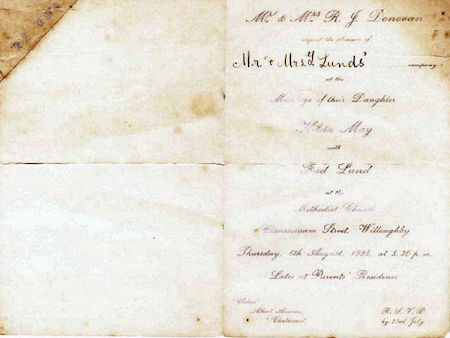 Mr & Mrs R. J. Donovan
request the pleasure of
Mr. & Mrs. Lunds' company
at the
Marriage of their Daughter
Hilda May
with
Fred Lund
at the
Methodist Church
Street, Willoughby
Thursday, 6th August, 1925, at 5.30 p.m.
Later at Parents' Residence
Albert Avenue
Chatswood
R.S.V.P.
by 23rd July